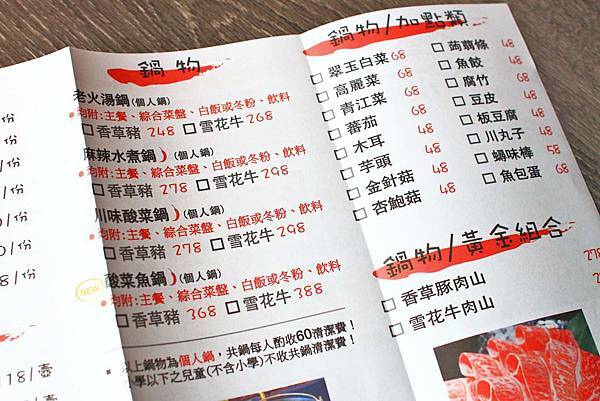 /份
/份
0/份
0/份
8/份
118/壺
鍋物
老火湯鍋(個人鍋)
均附:主餐、綜合菜盤、白飯或冬粉、飲料
香草豬 248 雪花牛 268
麻辣水煮鍋(個人鍋)
均附:主餐、綜合菜盤、白飯或冬粉、飲料
香草豬 278 雪花牛 298
川味酸菜鍋(個人鍋)
均附:主餐、綜合菜盤、白飯或冬粉、飲料
香草豬 278 雪花牛 298
NEW 酸菜魚鍋(個人鍋)
均附:主餐、綜合菜盤、白飯或冬粉、飲料
香草豬 368 雪花牛 388
以上鍋物為個人鍋，共鍋每人酌收60清潔費！
小學以下之兒童(不含小學)不收共鍋清潔費！
鍋物/加點類
翠玉白菜 68
高麗菜 68
青江菜 68
蕃茄 48
木耳 48
芋頭 48
金針菇 48
杏鮑菇 48
蒟蒻條 48
魚餃 48
腐竹 68
豆皮 48
板豆腐 48
川丸子 48
蟳味棒 58
魚包蛋 68
鍋物/黃金組合
香草豚肉山 278
雪花牛肉山